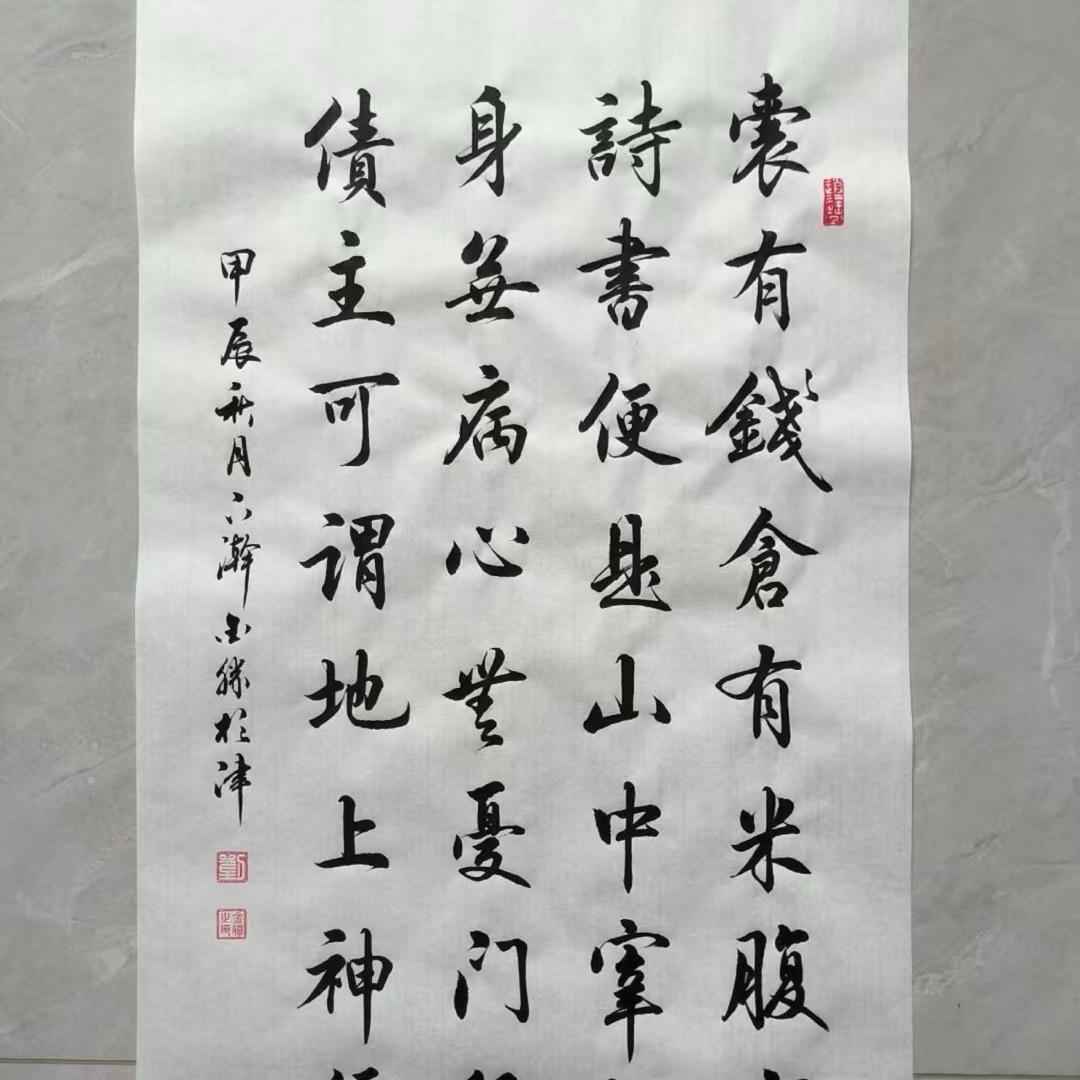 囊有錢倉有米腹
詩書便是山中宰
身無病心無憂门
債主可謂地上神
甲辰秋月
於津